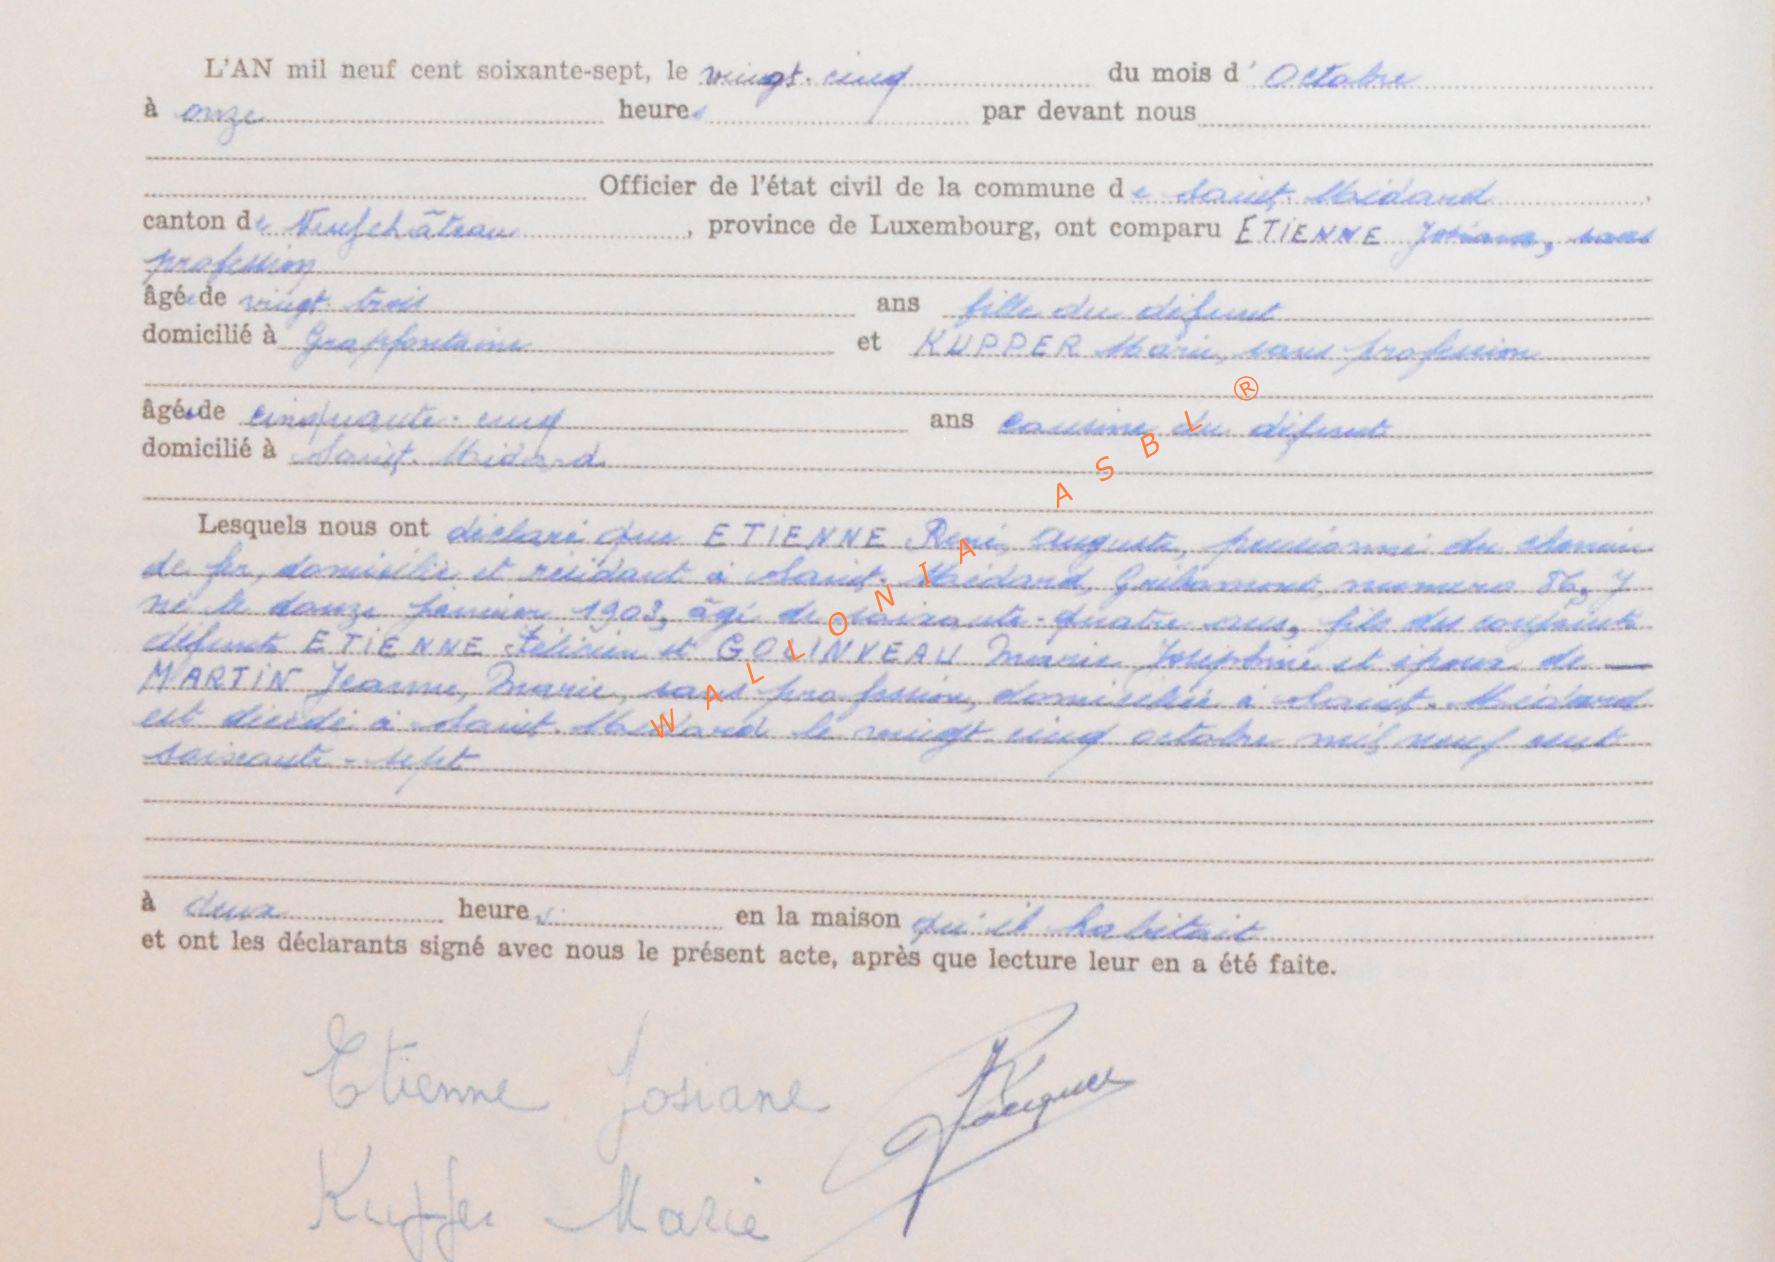 L'AN mil neuf cent soixante-sept, le vingt-cinq du mois d' Octobre
à onze heures par devant nous
Officier de l'état civil de la commune de Saint-Médard,
canton de Neufchâteau, province de Luxembourg, ont comparu ETIENNE Josiane, sans
profession
âgée de vingt-trois ans fille du défunt
domicilié à Grapfontaine et KUPPER Marie, sans profession
âgée de cinquante-cinq ans cousine du défunt
domicilié à Saint-Médard
Lesquels nous ont déclaré que ETIENNE René, Auguste, pensionné du chemin
de fer, domicilié et résidant à Saint-Médard, numéro 56, y
né le douze février 1903, âgé de soixante-quatre ans, fils des conjoints
défunts ETIENNE Félicien et GOLINVEAU Marie Joséphine et époux de —
MARTIN Jeanne, Marie, sans profession, domiciliée à Saint-Médard
est décédé à Saint-Médard le vingt-cinq octobre mil neuf cent
soixante-sept
à deux heures en la maison qu'il habitait
et ont les déclarants signé avec nous le présent acte, après que lecture leur en a été faite.
Etienne Josiane
Jacques
Kupper Marie
WALLONIA ASBL ®